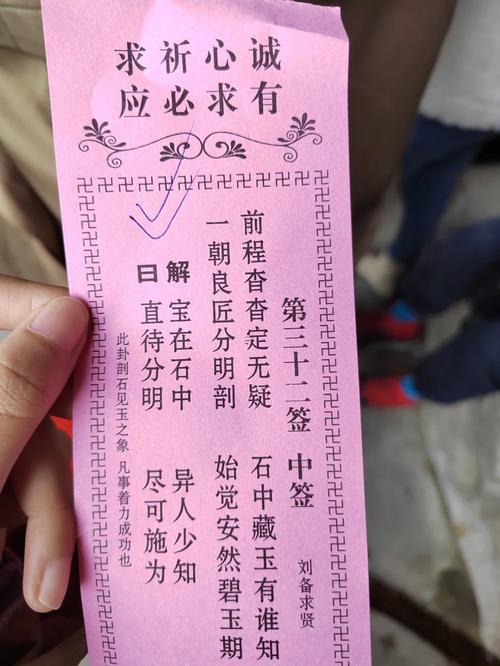 诚心祈求
有求必应
第三十二签 中签 刘备求贤
前程杳杳定无疑 石中藏玉有谁知
一朝良匠分明剖 始觉安然碧玉期
解曰
宝在石中 异人少知
直待分明 尽可施为
此卦剖石见玉之象 凡事着力成功也